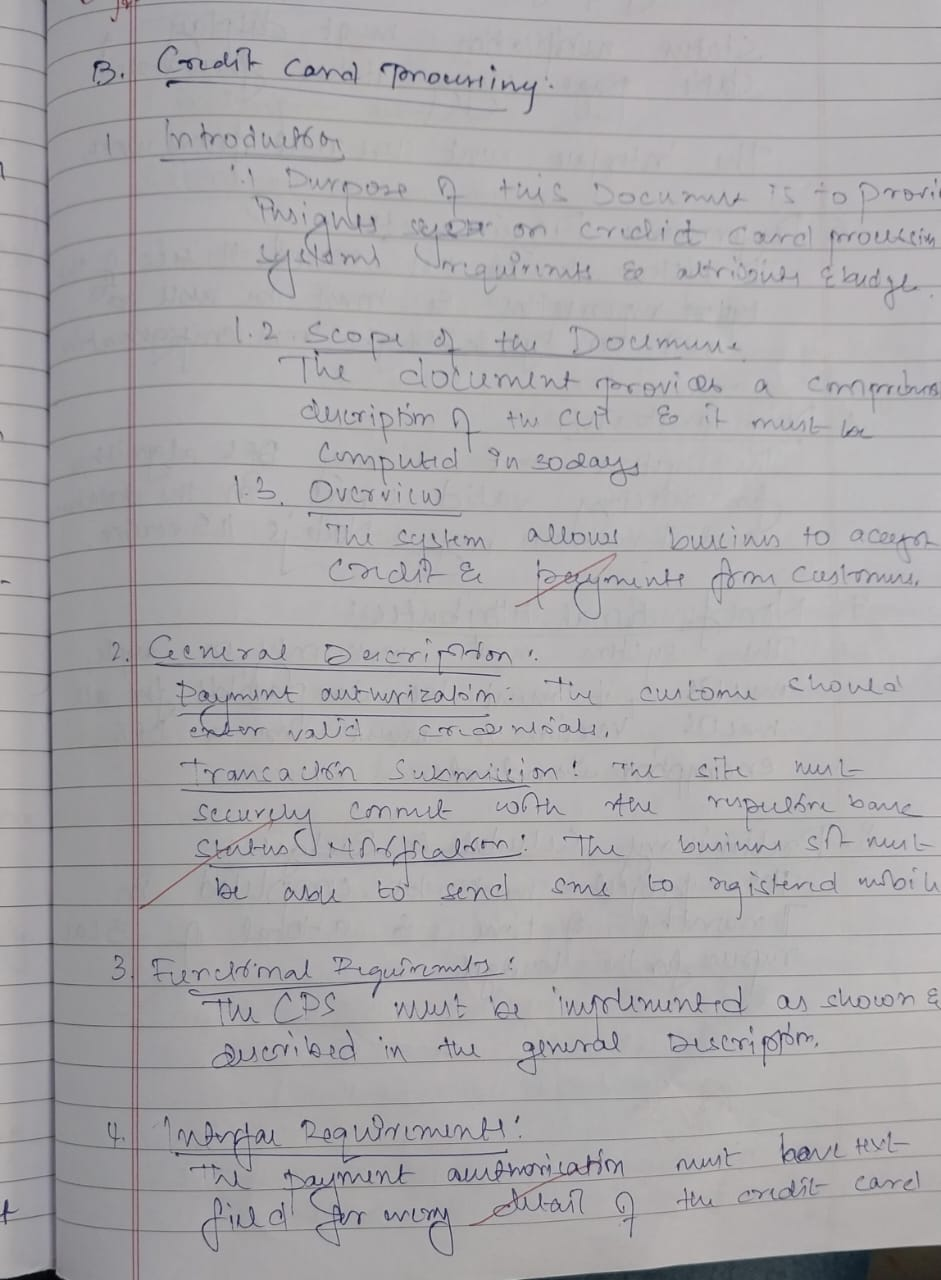 B. Credit Card Processing.
1. Introduction
1.1 Purpose of this Document is to provi
Insights on credict card processin
systems requirements & attributes & budge.
1.2 Scope of the Document
The document provides a comprehens
description of the & it must be
Completed in 30 days
1.3. Overview
The system allows business to accept
Credit & payments from customers.
2. General Description:
Payment authorization: The customer should
enter valid credentials.
Transaction Submission: The site must
securely connect with the respective bank
Status Notification: The business sft must
be able to send sms to registered mobile
3. Functional Requirements:
The CPS must be implemented as shown &
described in the general Description.
4. Interface Requirements:
The payment authorication must have text
field for every detail of the credit card